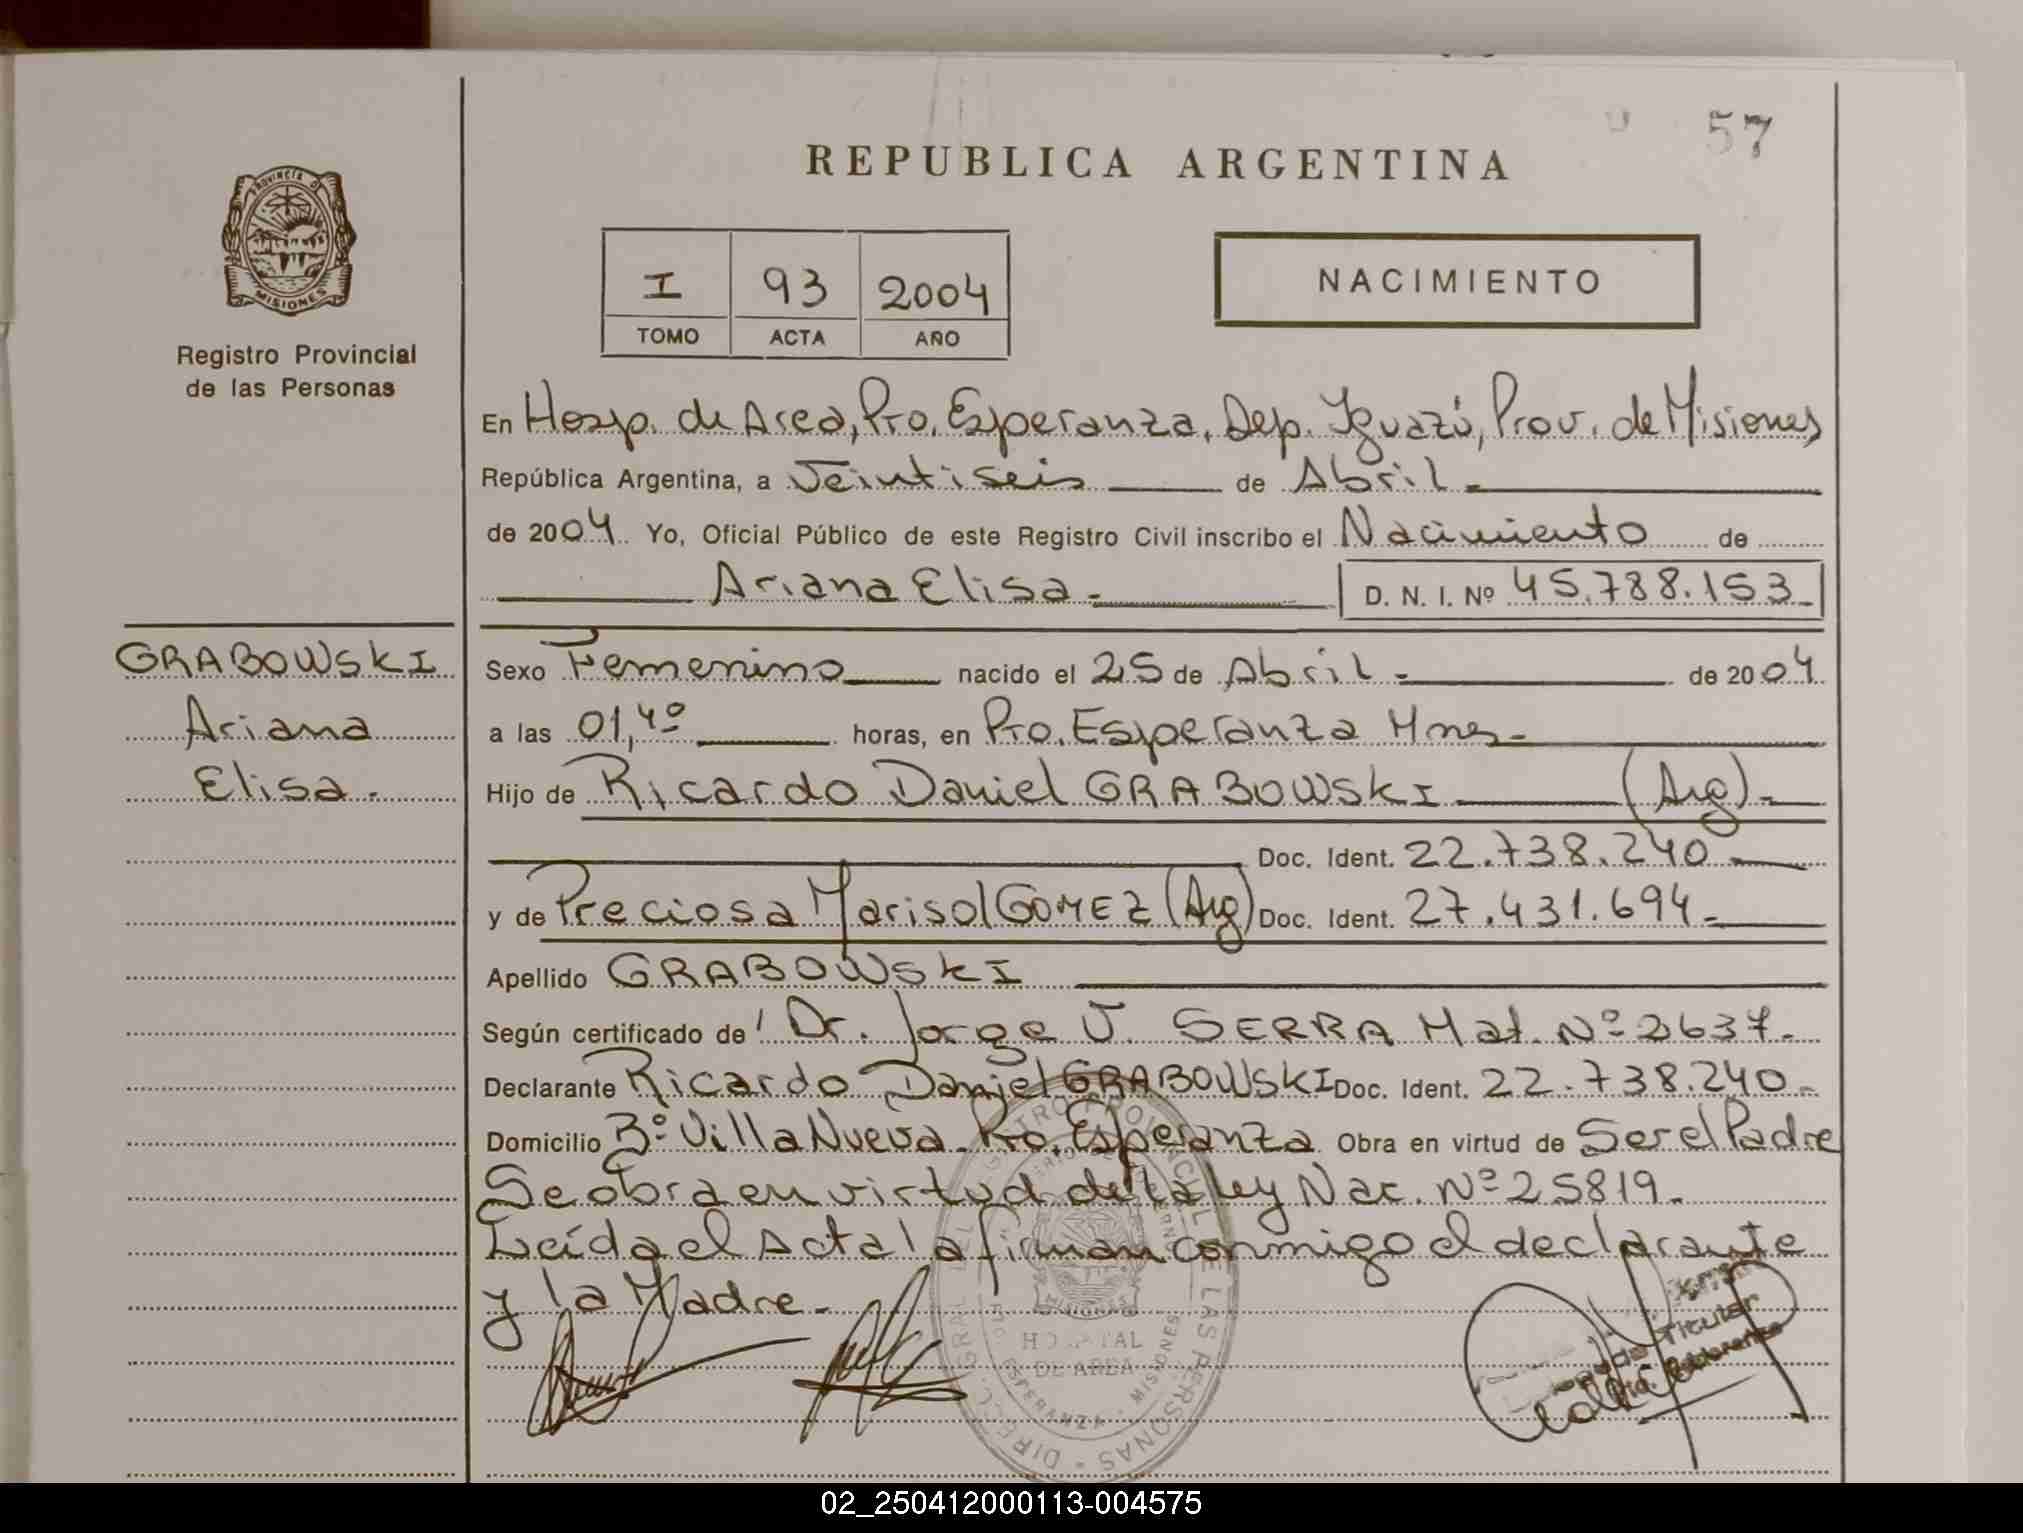 57
REPUBLICA ARGENTINA
PROVINCIA DE
MISIONES
Registro Provincial
de las Personas
I 93 2004
TOMO ACTA AÑO
NACIMIENTO
En Hosp. de Area, Pto. Esperanza, Dep. Iguazú, Prov. de Misiones
República Argentina, a Veintiseis de Abril.
de 2004. Yo, Oficial Público de este Registro Civil inscribo el Nacimiento de
Ariana Elisa.- D. N. I. Nº 45.788.153
GRABOWSKI
Ariana
Elisa.
Sexo Femenino nacido el 25 de Abril.- de 2004
a las 01,40 horas, en Pto. Esperanza Mnes-
Hijo de Ricardo Daniel GRABOWSKI (Arg).-
Doc. Ident. 22.738.240
y de Preciosa Marisol GOMEZ (Arg) Doc. Ident. 27.431.694.-
Apellido GRABOWSKI
Según certificado de Dr. Jorge J. SERRA Mat. Nº 2637.-
Declarante Ricardo Daniel GRABOWSKI Doc. Ident. 22.738.240.-
Domicilio Bº Villa Nueva. Pto. Esperanza Obra en virtud de Ser el Padre
Se obra en virtud de la ley Nac. Nº 25819.
Leída el Acta la firman conmigo el declarante
y la Madre.-
HOSPITAL
DE AREA
ESPERANZA - MISIONES
DIRECC. GRAL. DEL REGISTRO PROVINCIAL DE LAS PERSONAS
Titular
02_250412000113-004575